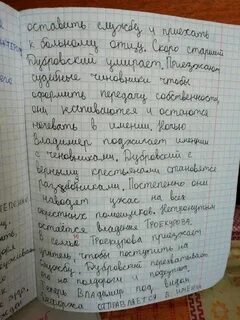 оставить службу и приехать
к больному отцу. Скоро старший
Дубровский умирает. Приезжают
судебные чиновники чтобы
оформить передачу собственности,
они напиваются и остаются
ночевать в имении. Ночью
Владимир поджигает имение
с чиновниками. Дубровский с
верными крестьянами становятся
разбойниками. Постепенно они
наводят ужас на всех
окрестных помещиков. Нетронутым
остаётся владения Троекурова.
В семью Троекурова приезжает
учитель чтобы поступить на
службу. Дубровский перехватывает
его на полдороги и подкупает.
Теперь Владимир под видом
отправляется в имение